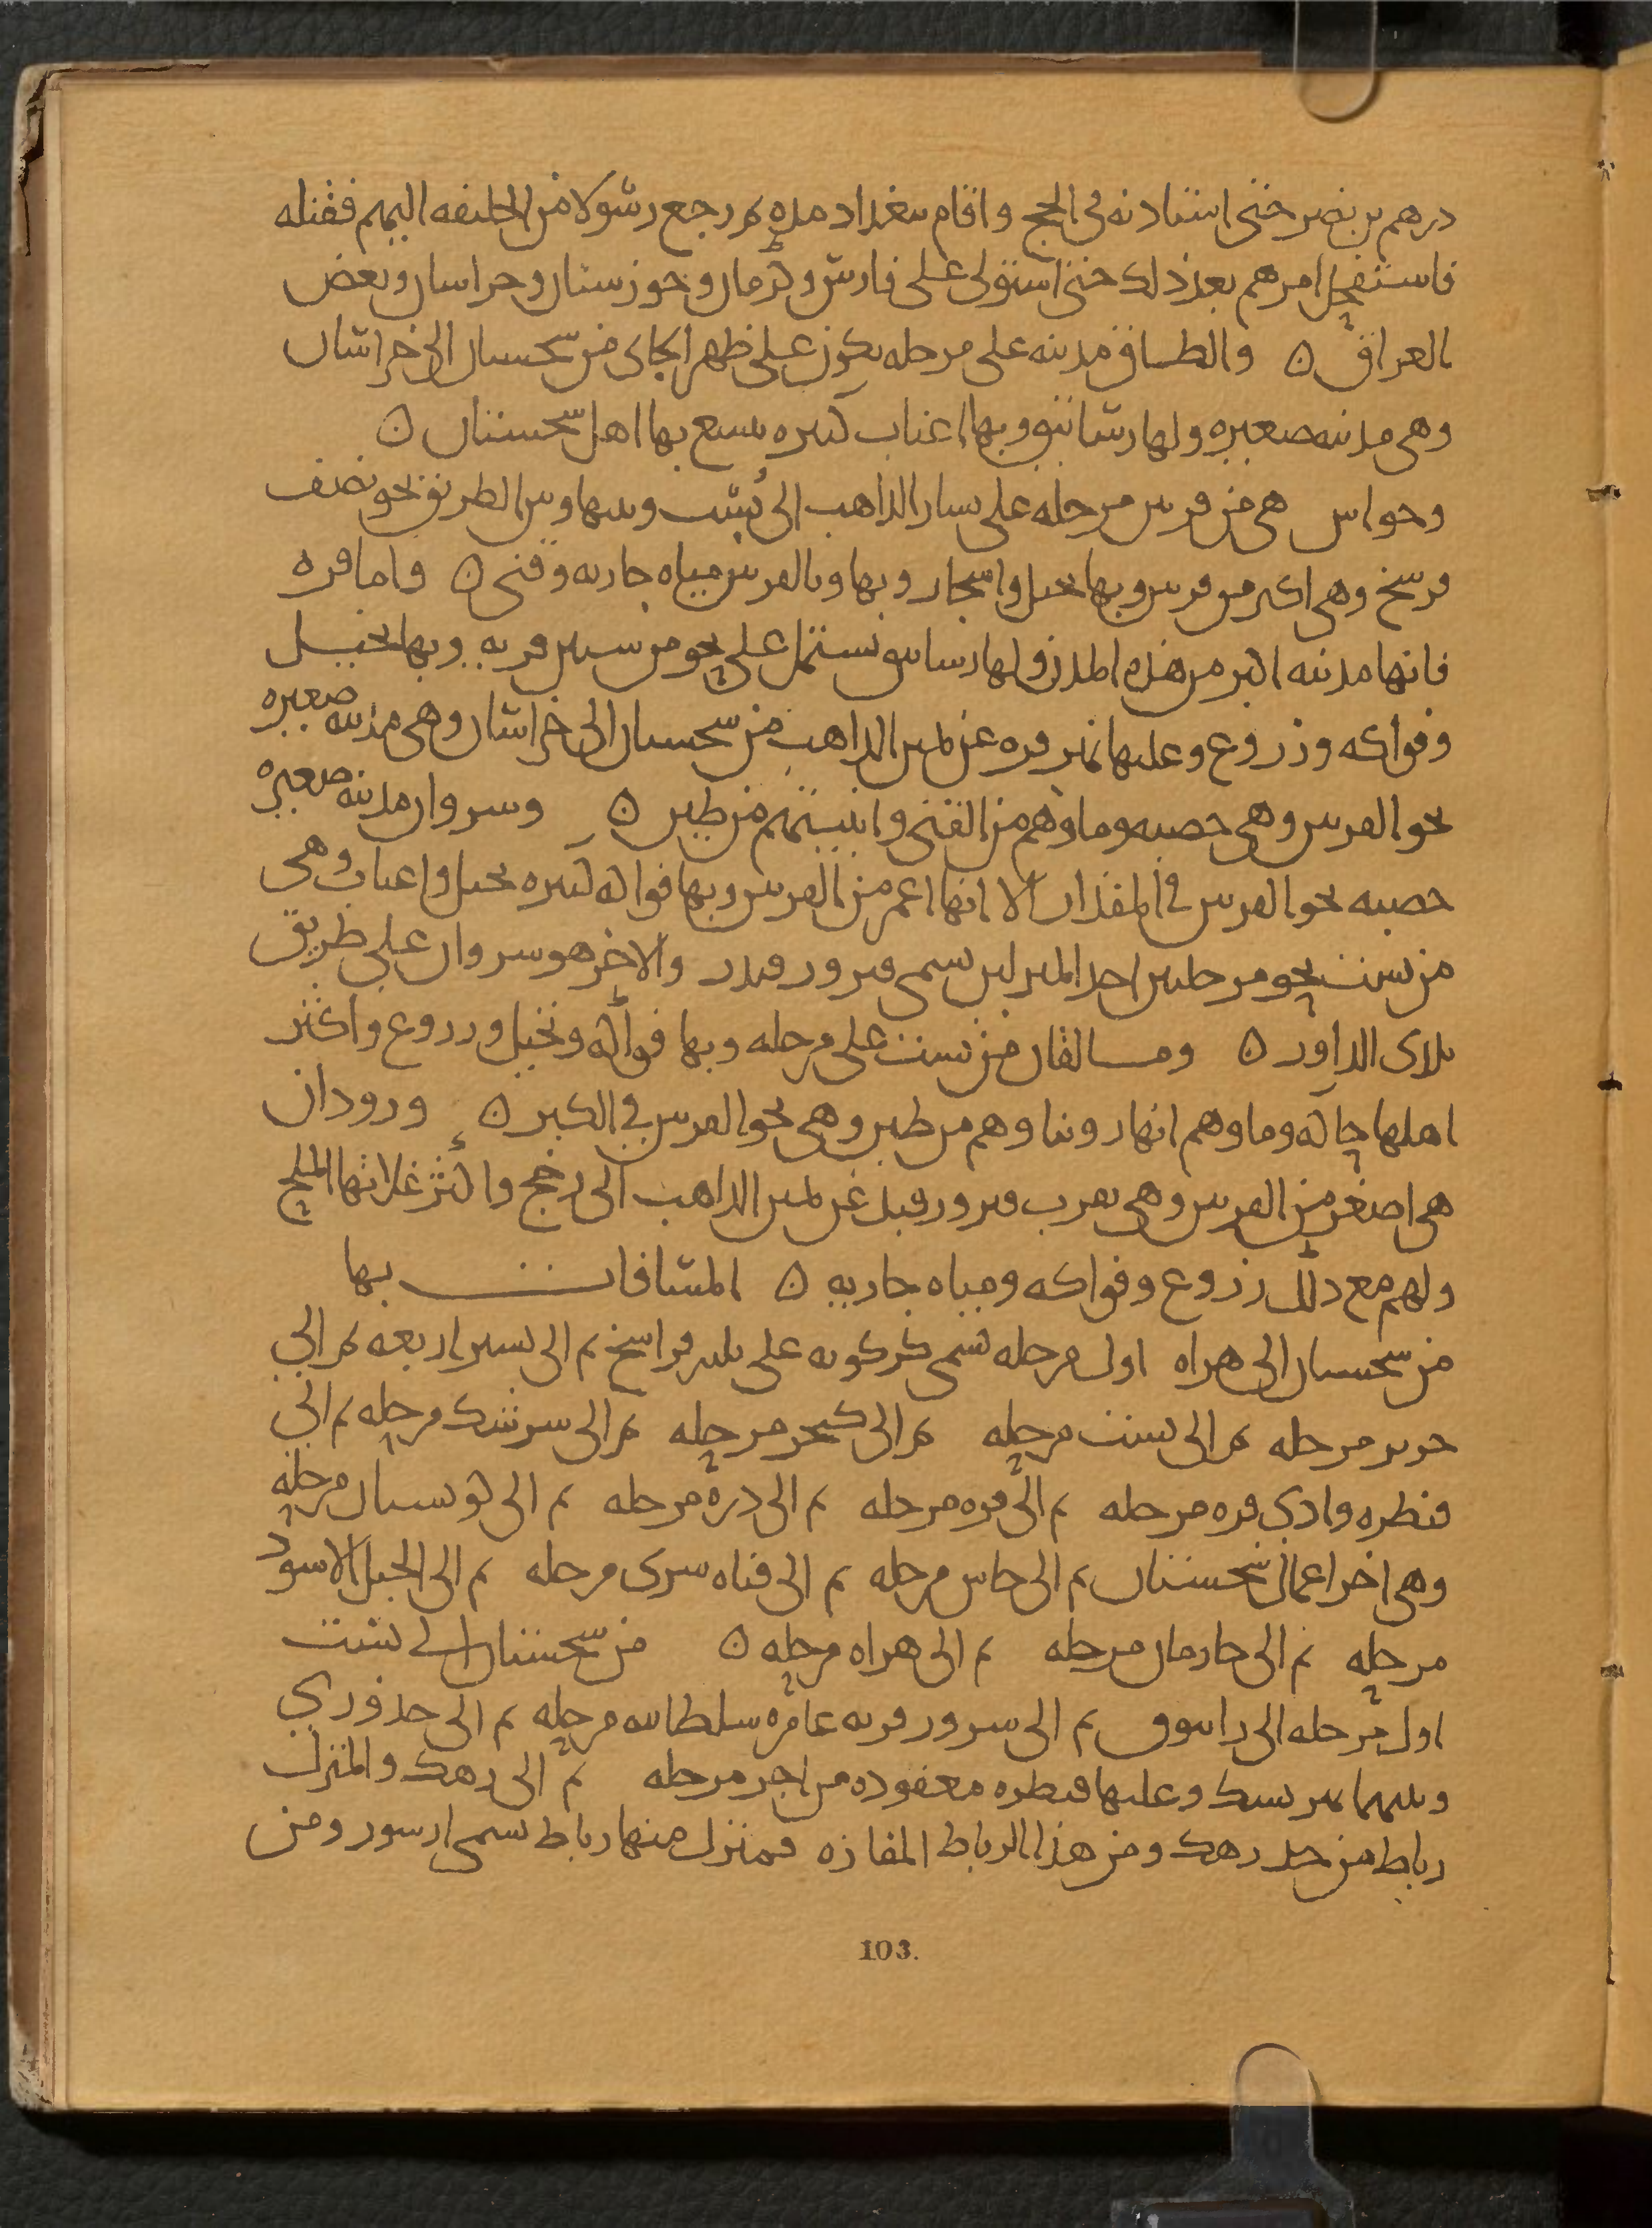 درهم بن نصر حتى استاذنه في الحج واقام ببغداد مده ثم رجع رسولا من الخليفه اليهم فقتله
فاستفحل امرهم بعد ذلك حتى استولى على فارس وكرمان وخوزستان وخراسان وبعض
العراق ن والطاق مدينه على مرحله يكون على ظهر الجائي من سجستان الى خراسان
وهي مدينه صغيره ولها رساتيق وبها اعناب كثيره يتسع بها اهل سجستان ن
وحواس هي من قرنين مرحله على يسار الذاهب الى بُست وبينها وبين الطريق نحو نصف
فرسخ وهي اكبر من قرنين وبها نخيل واشجار وبها وبالقرنين مياه جاريه وقنى ن واما فره
فانها مدينه اكبر من هذه المدن ولها رساتيق تشتمل على نحو من ستين قريه وبها نخيل
وفواكه وزروع وعليها نهر فره عن يمين الذاهب من سجستان الى خراسان وهي مدينه صغيره
نحو القرنين وهي خصبه وماوهم من القنى وابنيتهم من طين ن وسروان مدينه صغيره
خصبه نحو القرنين في المقدار الا انها اعمر من القرنين وبها فواكه كثيره نخيل واعناب وهي
من بست نحو مرحلتين احد المنزلين يسمى فيروزقند والاخر هو سروان على طريق
بلدى الداور ن وسالقان من بست على مرحله وبها فواكه ونخيل وزروع واكثر
اهلها حاكه وماوهم انهار وبناوهم من طين وهي نحو القرنين في الكبر ن وروذان
هي اصغر من القرنين وهي بقرب فيروزقند عن يمين الذاهب الى رخج واكثر غلاتها الملح
ولهم مع ذلك زروع وفواكه ومياه جاريه ن المسافات بها
من سجستان الى هراه اول مرحله تسمى كركويه على ثلثه فراسخ ثم الى بشتر اربعه ثم الى
جوين مرحله ثم الى بست مرحله ثم الى كنجر مرحله ثم الى سرشك مرحله ثم الى
قنطره وادى فره مرحله ثم الى فره مرحله ثم الى دره مرحله ثم الى كوستان مرحله
وهي اخر اعمال سجستان ثم الى جاس مرحله ثم الى قناه سرى مرحله ثم الى الجبل الاسود
مرحله ثم الى جادمان مرحله ثم الى هراه مرحله ن من سجستان الى بست
اول مرحله الى زانبوق ثم الى سرور قريه عامره سلطانيه مرحله ثم الى حد فوري
وبينهما نهر نيشك وعليها قنطره معقوده من اجر مرحله ثم الى دهك والمنزل
رباط من حد دهك ومن هذا الرباط المفازه فمنزل منها رباط يسمى ابشور ومن
103.